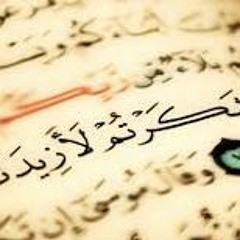 بَلَاءٌ مِّن رَّبِّكـ
شَكَرْتُمْ لَأَزِيدَنـ
وَقَالَ مُوسَىٰ إِن تَكـ